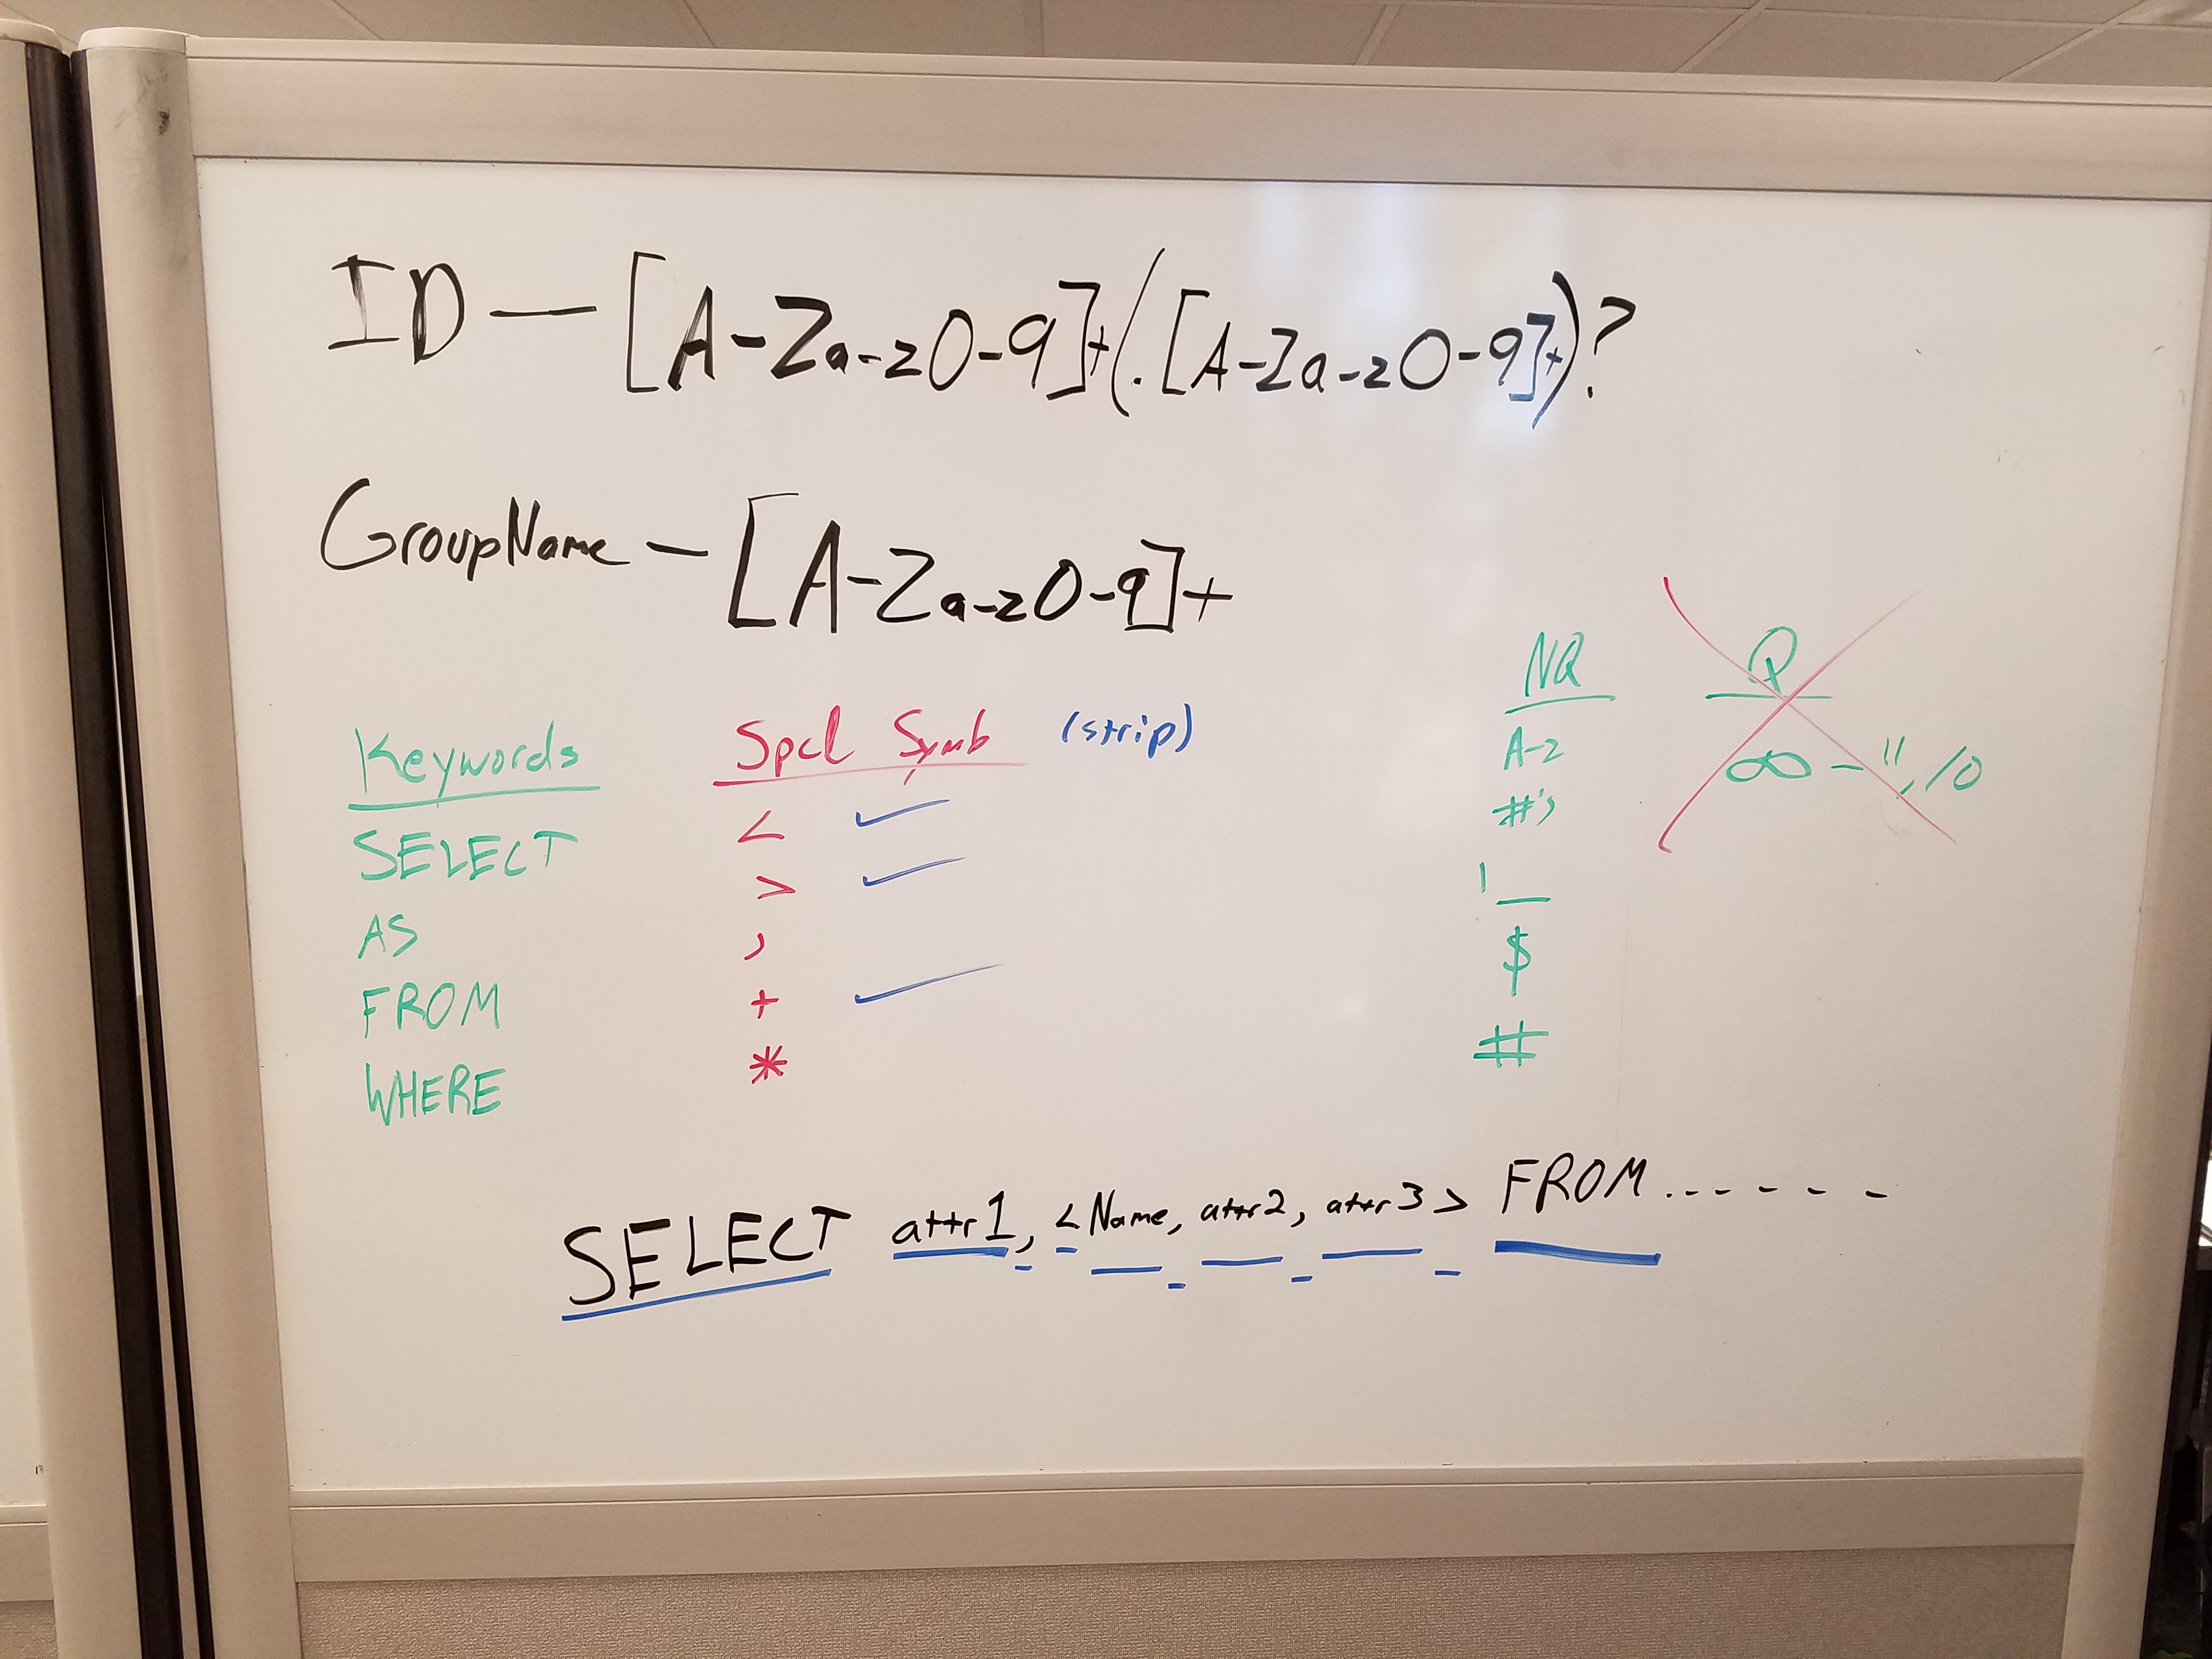 ID — [A-Za-z0-9]+(.[A-Za-z0-9]+)?
GroupName — [A-Za-z0-9]+
Keywords
SELECT
AS
FROM
WHERE
Spcl Symb (strip)
< ✓
> ✓
,
+ ✓
*
NQ
A-z
#'s
_
$
#
Q
∞ - ", \0
SELECT attr1, <Name, attr2, attr3> FROM ......